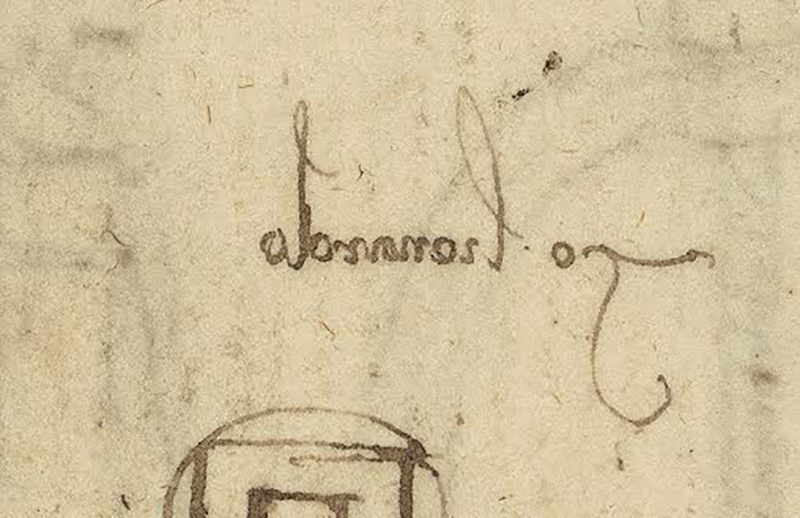 Io lionardo